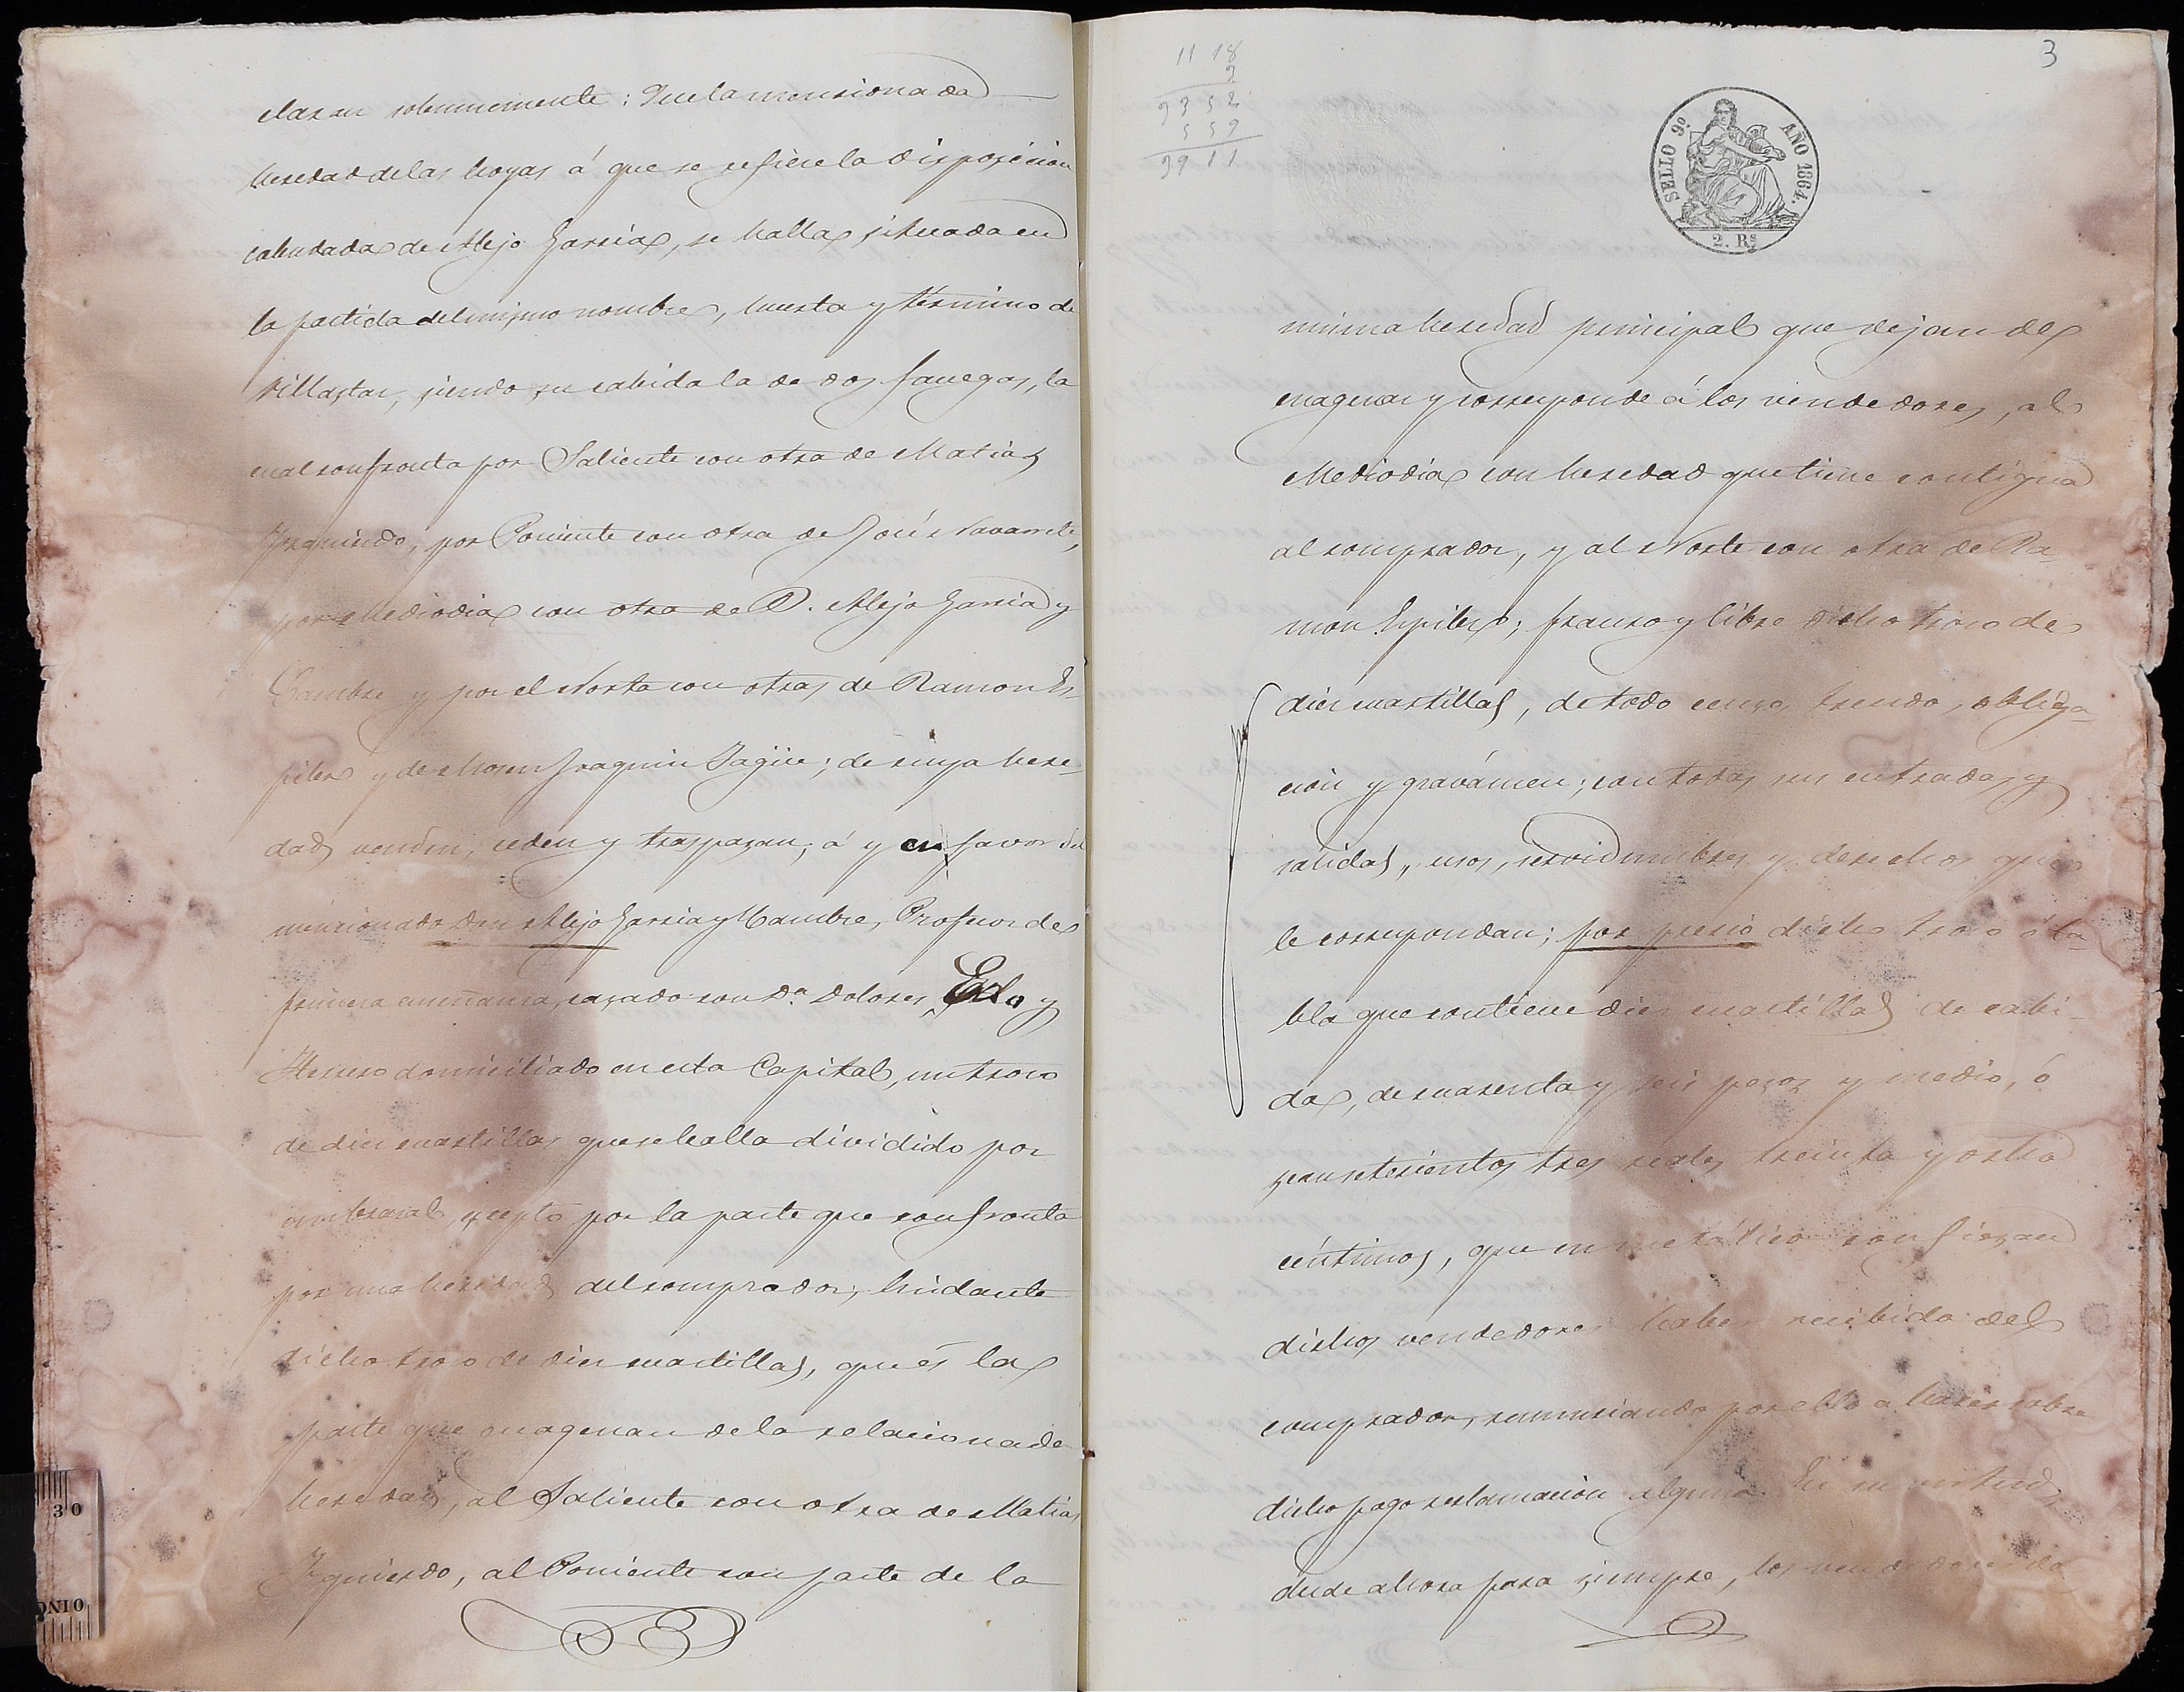 claran solemnemente: Que la mensionada
heredad de las hoyas á que se refiere la disposicion
cabudada de Alejo Garcia, se halla situada en
la partida del mismo nombre, huerta y término de
Villastar, siendo su cabida la de dos fanegas, la
cual confronta por Saliente con otra de Matias
Izquierdo, por Poniente con otra de José Navarrete,
por Mediodia con otra de D. Alejo Garcia y
Cambre y por el Norte con otras de Ramon Es-
pilez y de Mosen Joaquin Yagüe; de cuya here-
dad venden, ceden y traspasan, á y en favor del
mencionado Don Alejo Garcia y Cambre, Profesor de
primera enseñanza, casado con D.ª Dolores Edo y
Herrero domiciliado en esta Capital, un trozo
de diez cuartillas que se halla dividido por
un brazal, ecepto por la parte que confronta
por una heredad del comprador; lindante
dicho trozo de diez cuartillas, qué es la
parte que enagenan de la relacionada
heredad, al Saliente con otra de Matias
Izquierdo, al Poniente con parte de la
11 18
3
9352
559
9911
3
SELLO 9º AÑO 1864.
2. Rs
misma heredad principal que dejan de
enagenar y corresponde á los vendedores, al
Mediodia con heredad que tiene contigua
al comprador, y al Norte con otra de Ra-
mon Espilez; franco y libre dicho trozo de
diez cuartillas, de todo censo, treudo, obliga-
cion y gravámen; con todas sus entradas y
salidas, usos, servidumbres y derechos que
le correspondan; por precio dicho trozo ó ta-
bla que contiene diez cuartillas de cabi-
da, de cuarenta y seis pesos y medio, ó
sean setecientos tres reales treinta y ocho
céntimos, que en metálico confiesan
dichos vendedores haber recibido del
comprador, renunciando por ello a hacer sobre
dicho pago reclamacion alguna. En su virtud,
desde ahora para siempre, los vendedores da